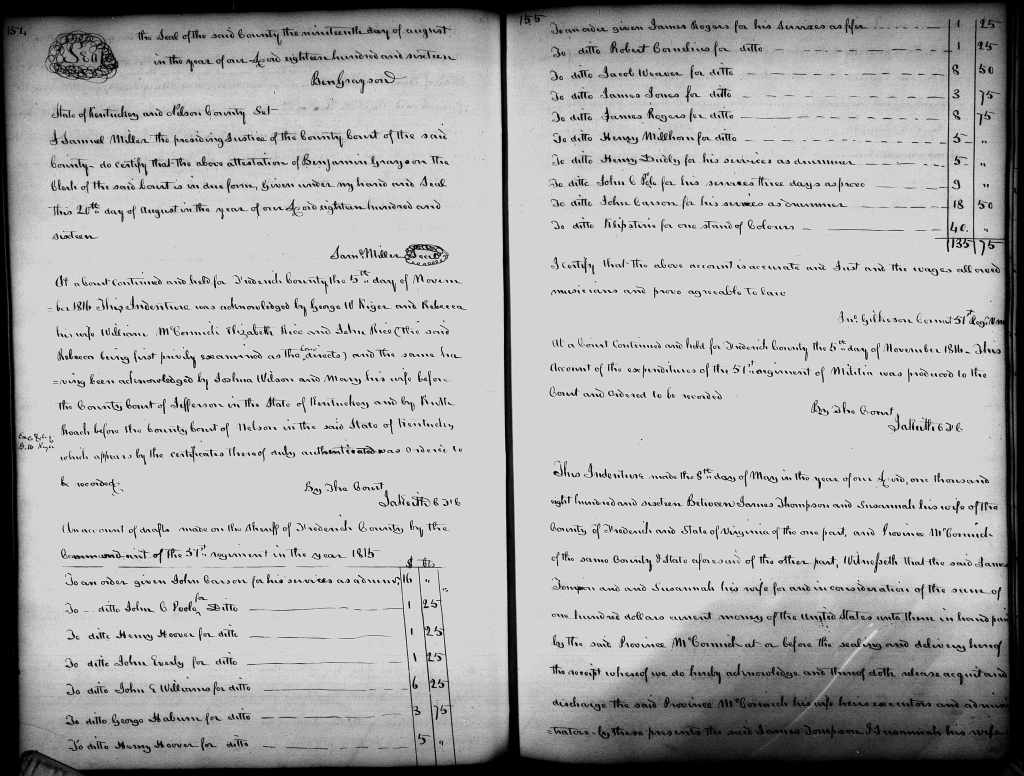 154
Seal
the Seal of the said County the nineteenth day of august
in the year of our Lord eighteen hundred and sixteen
Ben Grayson
State of Kentuckey and Nilson County Set
I Samuel Miller the presiding Justice of the County Court of the said
County do certify that the above attestation of Benjamin Grayson the
Clerk of the said Court is in due form, Given under my hand and Seal
this 20th day of August in the year of our Lord eighteen hundred and
sixteen
Saml Miller Seal
At a Court Continued and held for Frederick County the 5th day of Novem
=ber 1816 This Indenture was acknowledged by George W Kiger and Rebecca
his wife William McCormick Elizabeth Rice and John Rice (the said
Rebecca being first privily examined as the Law directs) and the same ha
=ving been acknowledged by Joshua Wilson and Mary his wife before
the County Court of Jefferson in the State of Kentuckey and by Ruth
Roach before the County Court of Nelson in the said State of Kentucky
which appears by the certificates thereof duly authenticated was Ordered to
be recorded
By The Court
Ja Keith C F C
An account of drafts made on the Sheriff of Frederick County by the
Command-ant of the 51st regiment in the year 1815
$ Cts
To an order given John Carson for his services as drummer 16 "
To ditto John C Poole for Ditto 1 25
To ditto Henry Hoover for ditto 1 25
To ditto John Everly for ditto 1 25
To ditto John E Williams for ditto 6 25
To ditto George Haburn for ditto 3 75
To ditto Henry Hoover for ditto 5 "
155
To an order given James Rogers for his services as fifer 1 25
To ditto Robert Cornelius for ditto 1 25
To ditto Jacob Weaver for ditto 8 50
To ditto James Jones for ditto 3 75
To ditto James Rogers for ditto 8 75
To ditto Henry Millhorn for ditto 5 "
To ditto Henry Duily for his services as drummer 5 "
To ditto John C Pole for his services three days as provo 9 "
To ditto John Carson for his services as drummer 18 50
To ditto Klipstine for one stand of Colours 40. "
135 75
I certify that the above account is accurate and Just and the wages allowed
musicians and provo agreeable to law
Jno. Gilkeson Comat 51st Regt
At a Court Continued and held for Frederick County the 5th day of November 1816 This
Account of the expenditures of the 51st regiment of Militia was produced to the
Court and Ordered to be recorded
By The Court
Ja Keith C F C
This Indenture made the 8th day of May in the year of our Lord, one thousand
eight hundred and sixteen Between James Thompson and Susannah his wife of the
County of Frederick and State of Virginia of the one part, and Province McCormick
of the same County & State aforesaid of the other part, Witnesseth that the said James
Tompson and Susannah his wife for and in consideration of the sum of
one hundred dollars current money of the United States unto them in hand paid
by the said Province McCormick at or before the sealing and delivery hereof
the receipt whereof we do hereby acknowledge and thereof doth release acquit and
discharge the said Province McCormick his wife heirs executors and adminis
=trators by these presents the said James Tompson & Susannah his wife